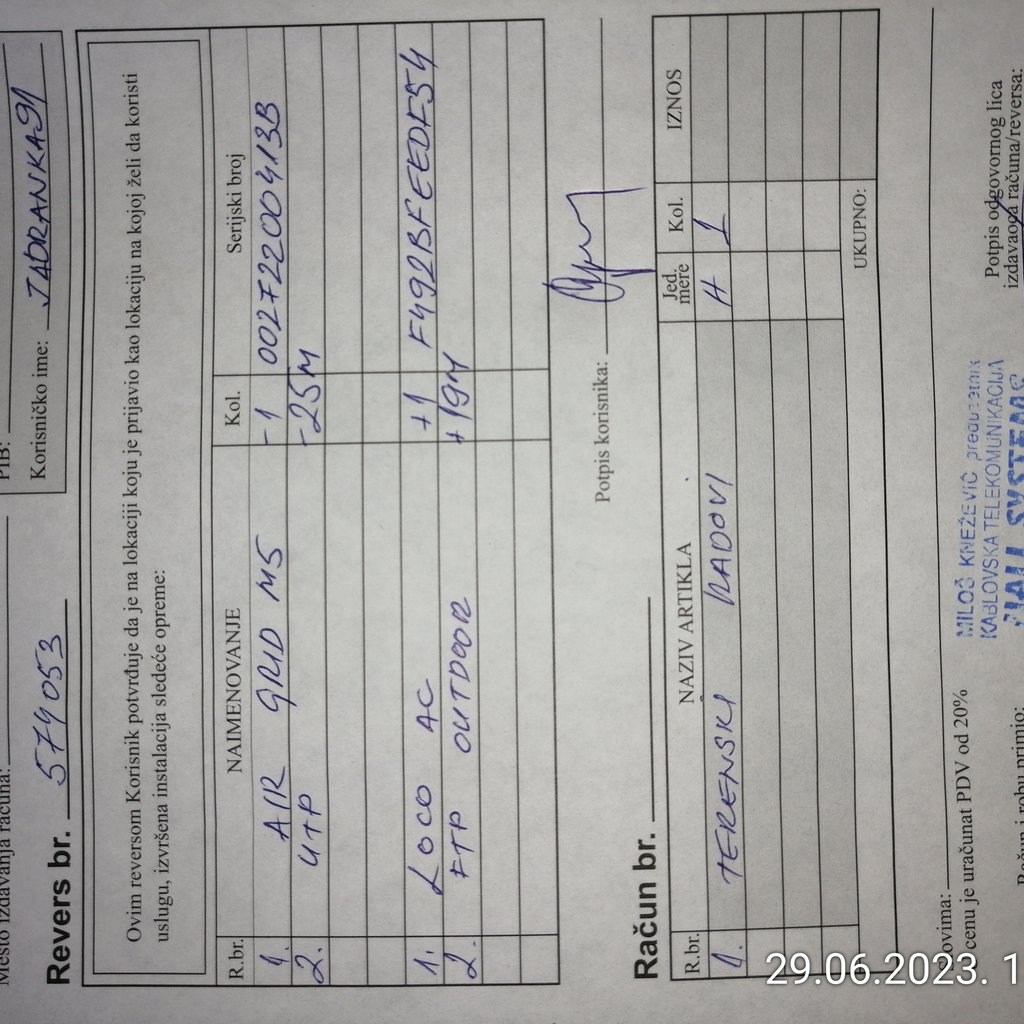 Mesto izdavanja računa:
PIB:
Korisničko ime: JADRANKA91
Revers br. 574053
Ovim reversom Korisnik potvrđuje da je na lokaciji koju je prijavio kao lokaciju na kojoj želi da koristi
uslugu, izvršena instalacija sledeće opreme:
R.br. NAIMENOVANJE Kol. Serijski broj
1. AIR GRID M5 -1 00272200413B
2. UTP -25M
1. LOCO AC +1 F492BFEEDF54
2. FTP OUTDOOR +19M
Potpis korisnika:
Račun br.
R.br. NAZIV ARTIKLA Jed. mere Kol. IZNOS
1. TERENSKI RADOVI H 1
UKUPNO:
Slovima:
cenu je uračunat PDV od 20%
MILOŠ KNEŽEVIĆ preduzetnik
KABLOVSKA TELEKOMUNIKACIJA
SYSTEMS
Potpis odgovornog lica
izdavaoca računa/reversa:
Račun i robu primio:
29.06.2023. 1